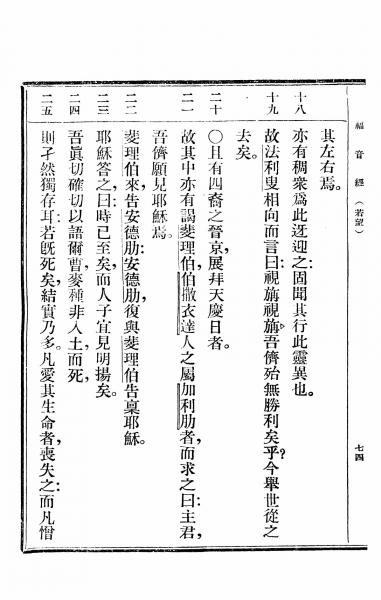 福音經（若望）
七四
其左右焉。
十八
亦有稠衆爲此迓迎之：固聞其行此靈異也。
十九
故法利叟相向而言曰：視旃視旃，吾儕殆無勝利矣乎？今舉世從之
去矣。
二十
〇且有四裔之晉京，展拜天慶日者。
二一
故其中亦有謁斐理伯伯撒衣達人之屬加利肋者，而求之曰：主君，
吾儕願見耶穌焉。
二二
斐理伯來告安德肋：安德肋，復與斐理伯告稟耶穌。
二三
耶穌答之曰：時已至矣，而人子宜見明揚矣。
二四
吾眞切確切以語爾曹，麥種非入土，而死，
二五
則孑然獨存耳：若旣死矣，結實乃多。凡愛其生命者，喪失之：而凡憎